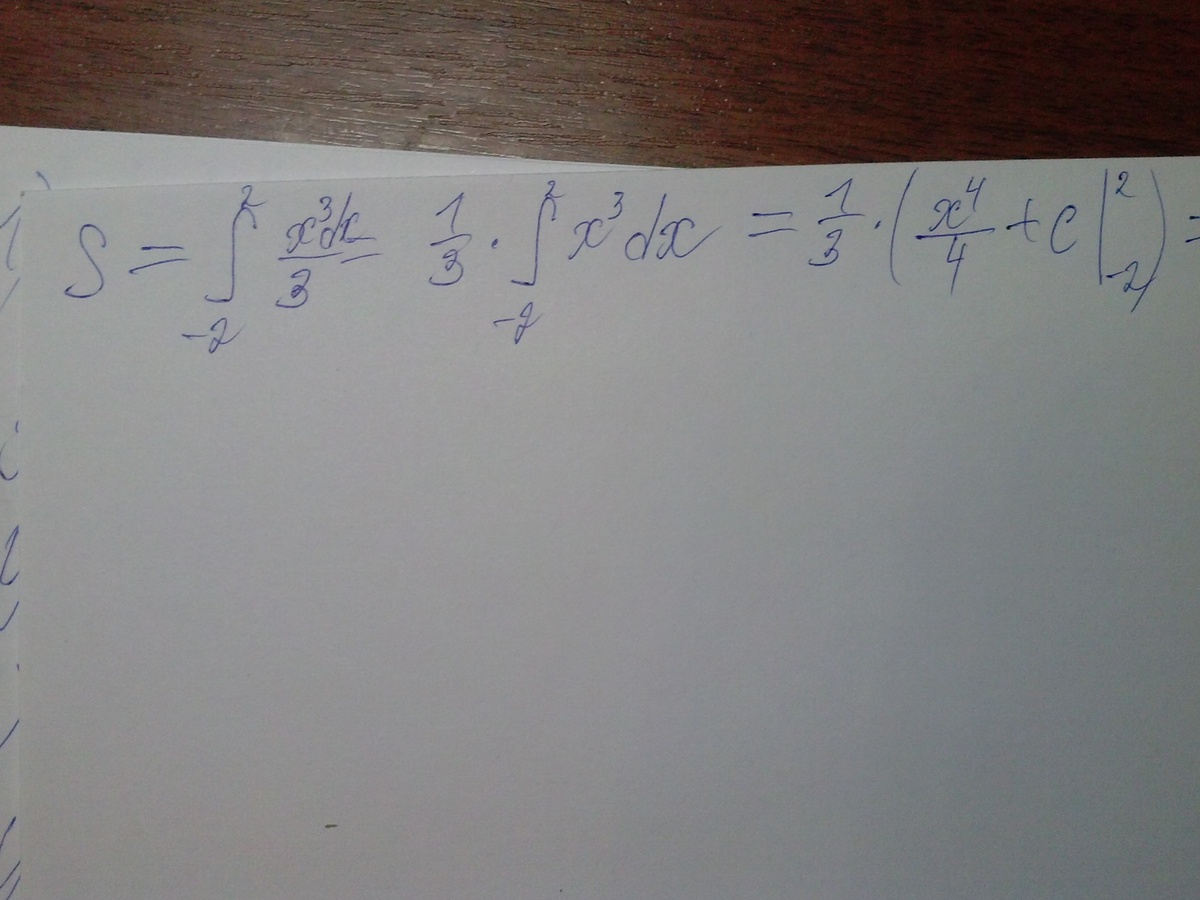 S = ∫₋₂² x³dx/3 = 1/3 · ∫₋₂² x³dx = 1/3 · (x⁴/4 + c |₋₂²) =